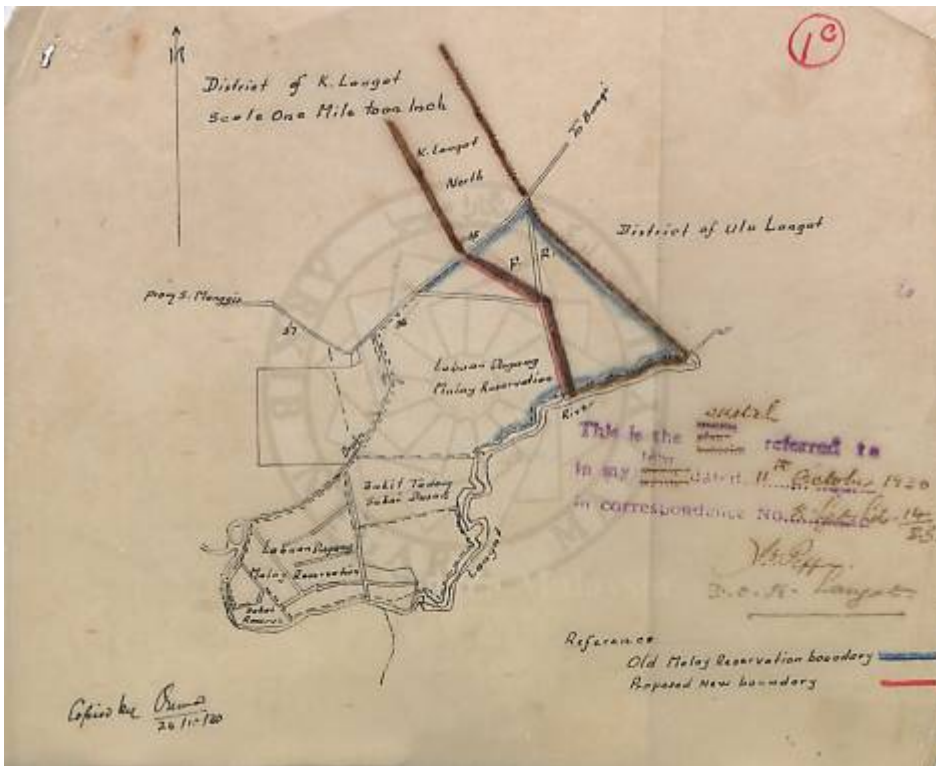 1c
N
District of K. Langat
Scale One Mile to an Inch
K. Langat
North
To Bangi
District of Ulu Langat
15
F. R.
From S. Manggis
17
16
Labuan Dagang
Malay Reservation
River
Langat
Bukit Tadom
Sakai
Labuan Dagang
Malay Reservation
Sakai
Reserve
This is the sketch referred to
in my letter dated 11th October 1930
in correspondence No.
D.O. K. Langat
Reference
Old Malay Reservation boundary
Proposed New boundary
Copied by
26/11/30